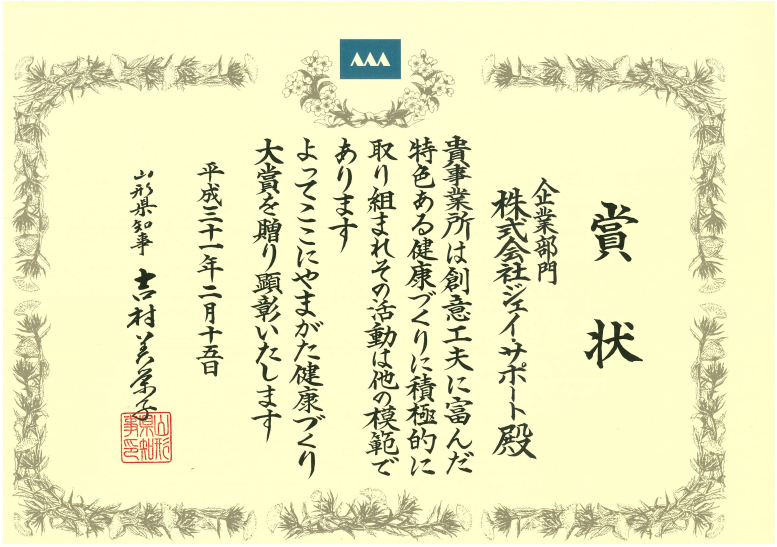 賞状
企業部門
株式会社ジェイ・サポート殿
貴事業所は創意工夫に富んだ
特色ある健康づくりに積極的に
取り組まれその活動は他の模範で
あります
よってここにやまがた健康づくり
大賞を贈り顕彰いたします
平成三十一年二月十五日
山形県知事 吉村美栄子
山形県知事印